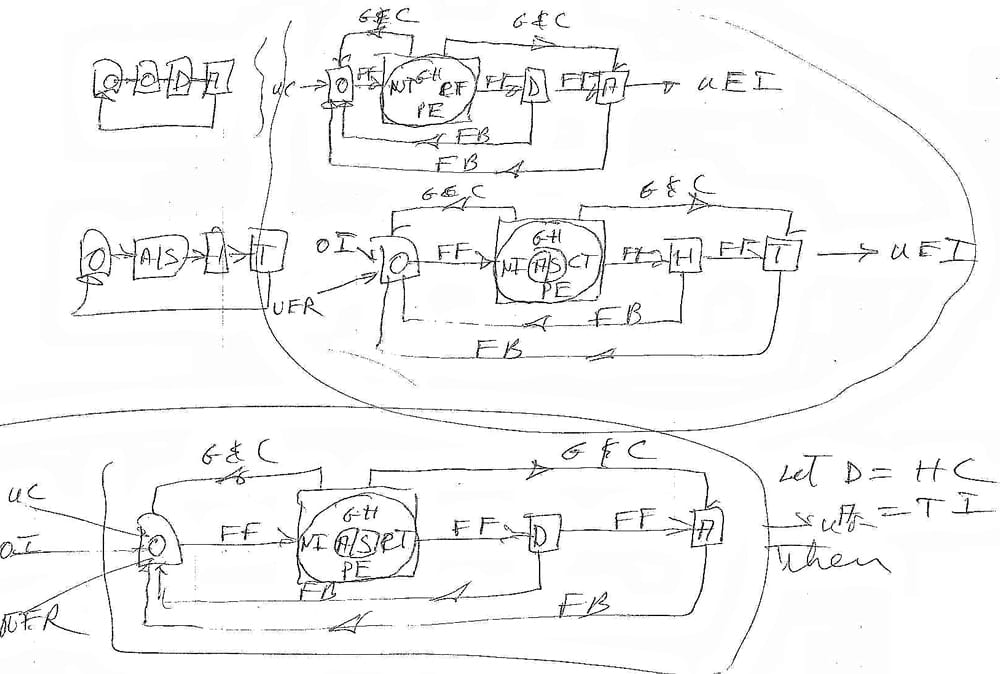 G&C G&C
O O D A
UC O FF NI GH RF PE FF D FF A UEI
FB
FB
G&C G&C
O A/S T
OI O FF NI GH A/S CT PE FF H FF T UEI
UER
FB
FB
G&C G&C
UC
OI O FF NI GH A/S RT PE FF D FF A
FB FB
Let D = HC
= TI
then